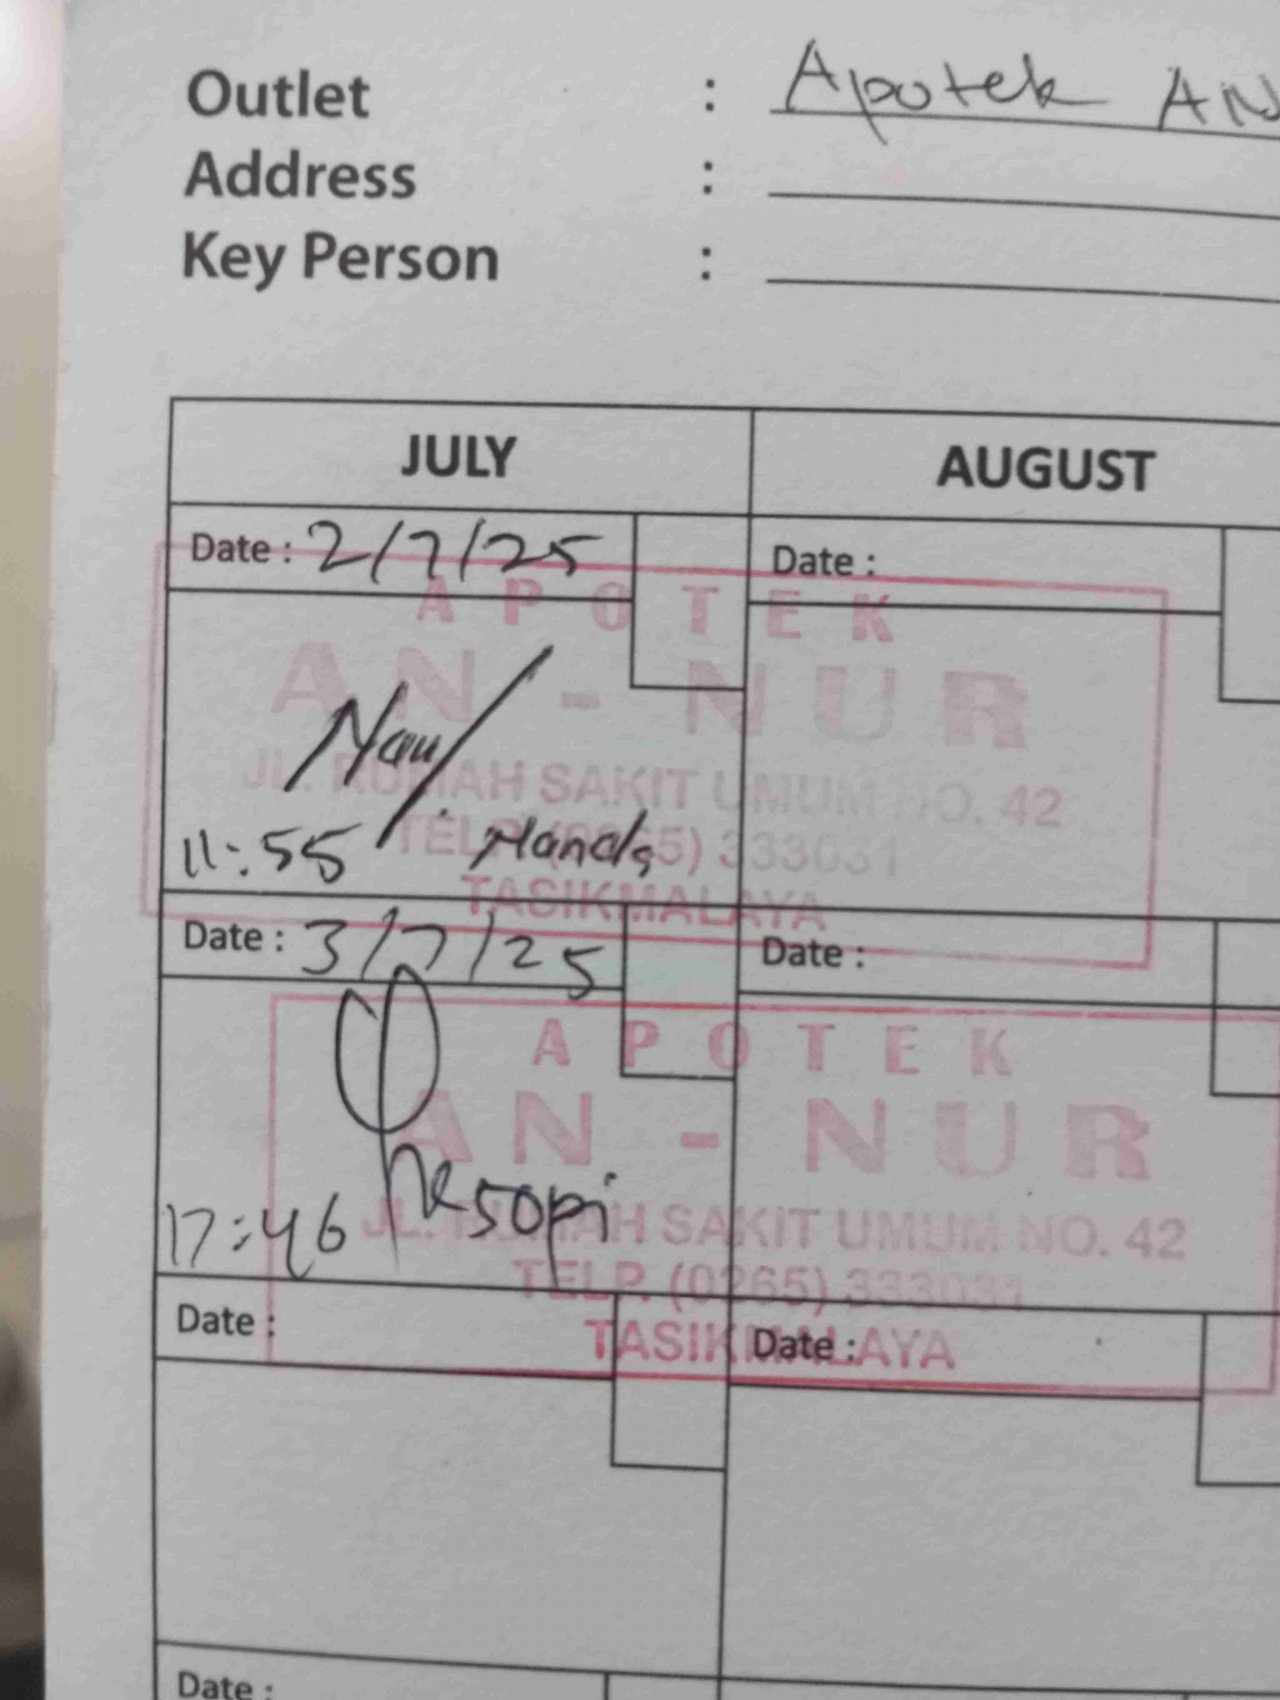 Outlet : Apotek AN
Address :
Key Person :
JULY
AUGUST
Date : 2/7/25
Date :
APOTEK
AN - NUR
JL. RUMAH SAKIT UMUM NO. 42
TELP. (0265) 333031
TASIKMALAYA
11:55
Date : 3/7/25
Date :
APOTEK
AN - NUR
JL. RUMAH SAKIT UMUM NO. 42
TELP. (0265) 333031
TASIKMALAYA
17:46
Date :
Date :
Date :